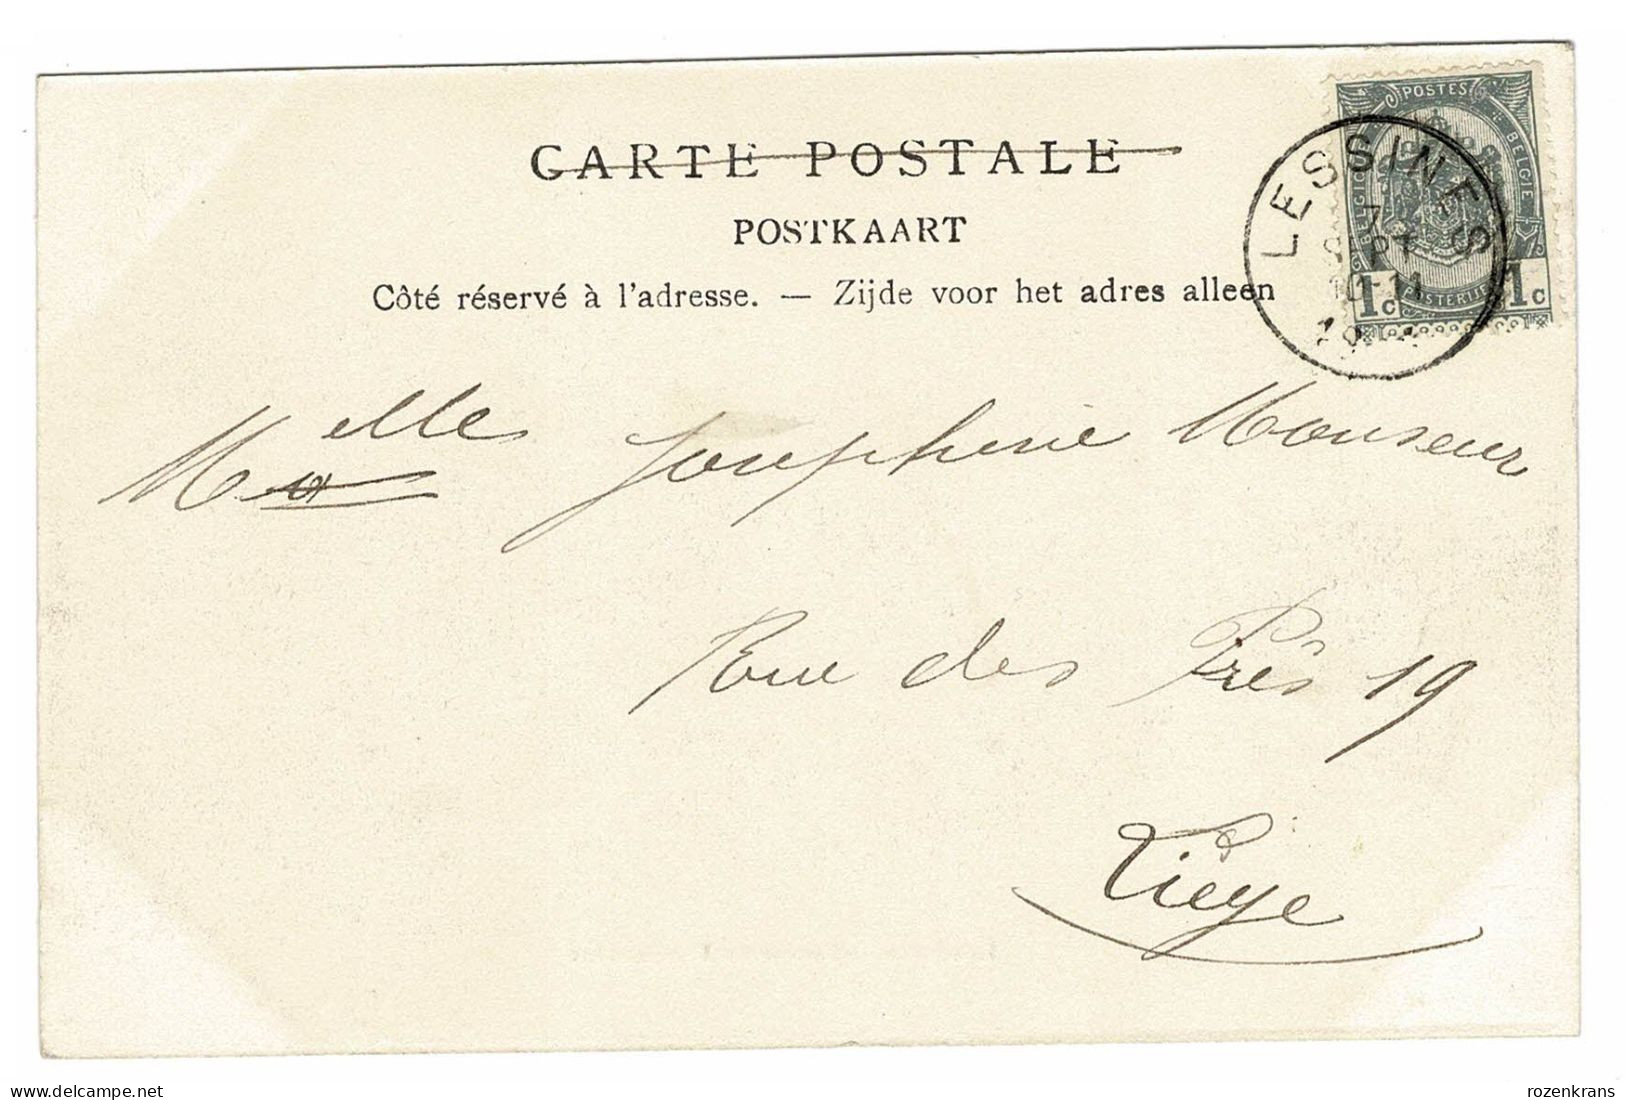 CARTE POSTALE
POSTKAART
Côté réservé à l'adresse. — Zijde voor het adres alleen
POSTES
BELGIQUE
BELGIE
POSTERIJEN
1c
1c
LESSINES
7
10-11
Melle Josephine Monseur
Rue des Prés 19
Liége
delcampe.net
rozenkrans